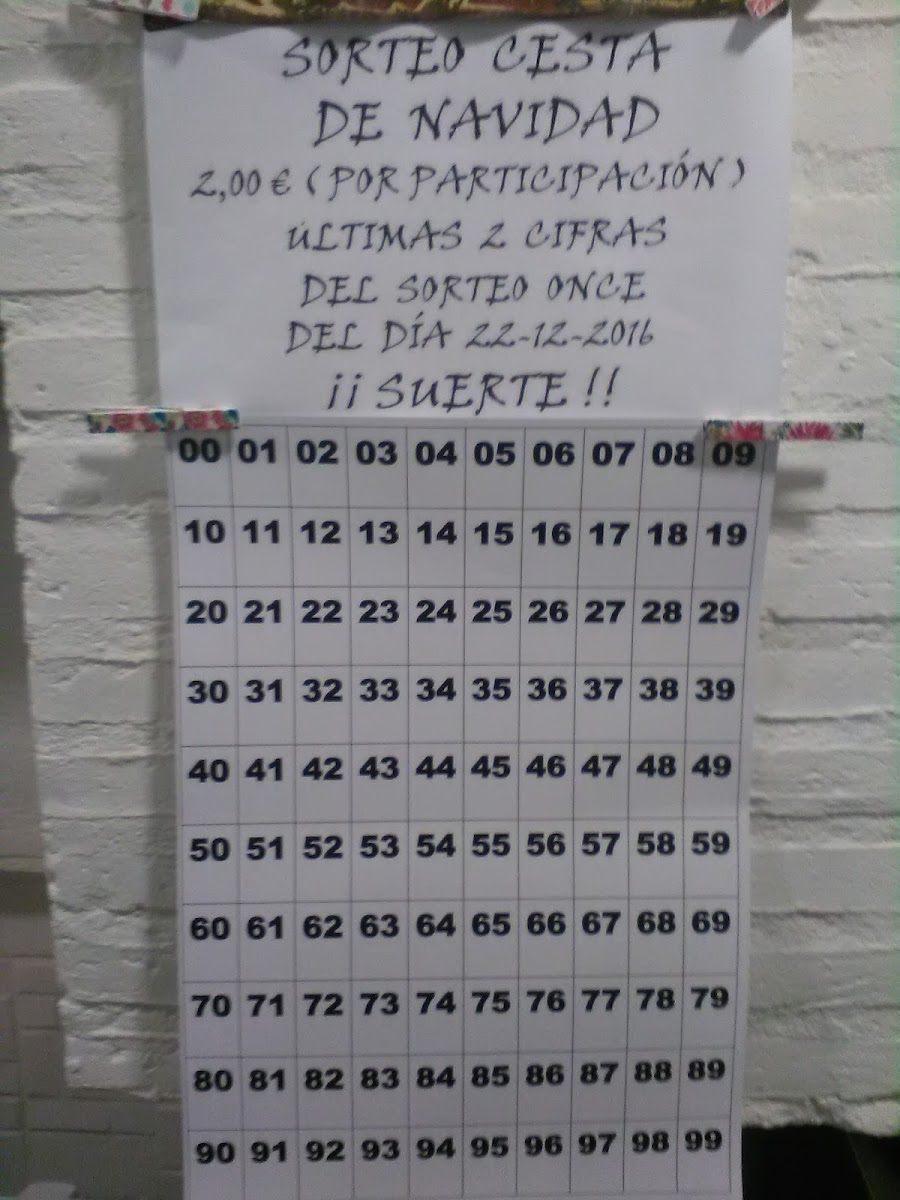 SORTEO CESTA
DE NAVIDAD
2,00 € (POR PARTICIPACIÓN)
ÚLTIMAS 2 CIFRAS
DEL SORTEO ONCE
DEL DÍA 22-12-2016
¡¡ SUERTE !!
00 01 02 03 04 05 06 07 08 09
10 11 12 13 14 15 16 17 18 19
20 21 22 23 24 25 26 27 28 29
30 31 32 33 34 35 36 37 38 39
40 41 42 43 44 45 46 47 48 49
50 51 52 53 54 55 56 57 58 59
60 61 62 63 64 65 66 67 68 69
70 71 72 73 74 75 76 77 78 79
80 81 82 83 84 85 86 87 88 89
90 91 92 93 94 95 96 97 98 99